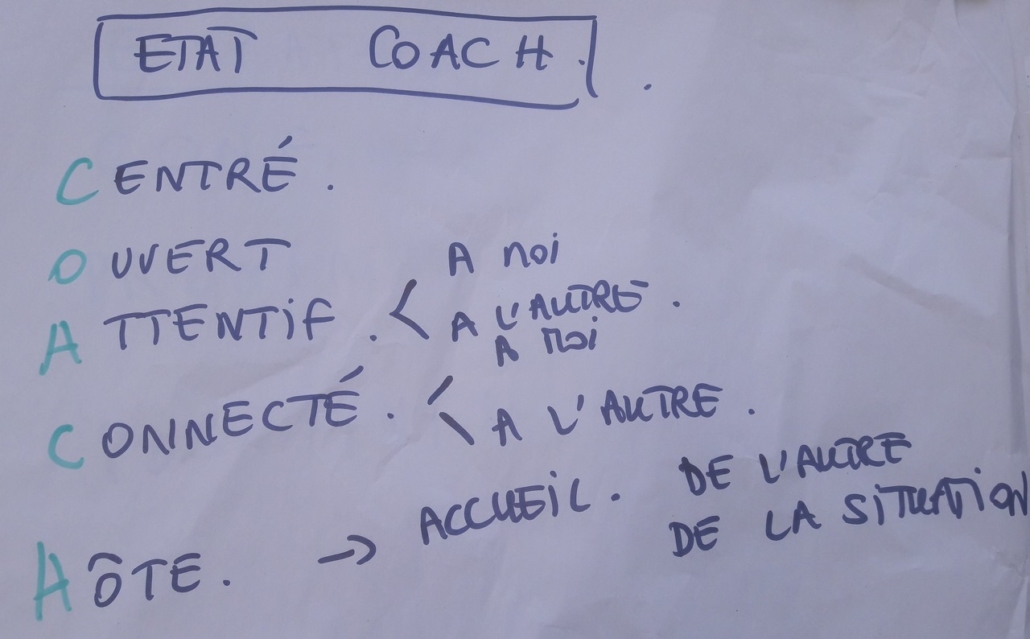 ETAT COACH.
CENTRÉ.
OUVERT
ATTENTIF. < A moi
A L'AUTRE.
CONNECTÉ. < A moi
A L'AUTRE.
HÔTE. → ACCUEIL. DE L'AUTRE
DE LA SITUATION